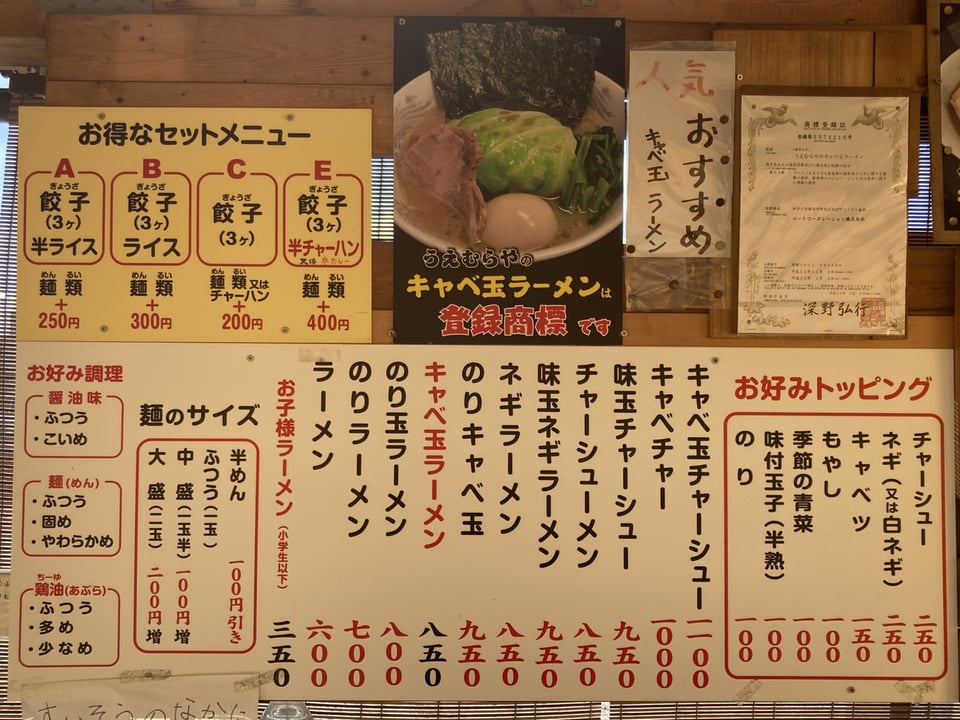 お得なセットメニュー
A
ぎょうざ
餃子
(3ヶ)
半ライス
めん るい
麺類
+
250円
B
ぎょうざ
餃子
(3ヶ)
ライス
めん るい
麺類
+
300円
C
ぎょうざ
餃子
(3ヶ)
めん るい
麺類又は
チャーハン
+
200円
E
ぎょうざ
餃子
(3ヶ)
半チャーハン
めん るい
麺類
+
400円
うえむらやの
キャベ玉ラーメンは
登録商標です
人気
おすすめ
キャベ玉ラーメン
商標登録証
うえむらやのキャベ玉ラーメン
深野弘行
お好み調理
醤油味
・ふつう
・こいめ
麺(めん)
・ふつう
・固め
・やわらかめ
ちーゆ
鶏油(あぶら)
・ふつう
・多め
・少なめ
麺のサイズ
半めん 一00円引き
ふつう(一玉)
中 盛(一玉半) 一00円増
大 盛(二玉) 二00円増
キャベ玉チャーシュー 一一00
キャベチャー 一000
味玉チャーシュー 九五0
チャーシューメン 八五0
味玉ネギラーメン 九五0
ネギラーメン 八五0
のりキャベ玉 九五0
キャベ玉ラーメン 八五0
のり玉ラーメン 八00
のりラーメン 七00
ラーメン 六00
お子様ラーメン(小学生以下) 三五0
お好みトッピング
チャーシュー 二五0
ネギ(又は白ネギ) 二五0
キャベツ 一五0
もやし 一00
季節の青菜 一00
味付玉子(半熟) 一00
のり 一00
すいそうのなかに